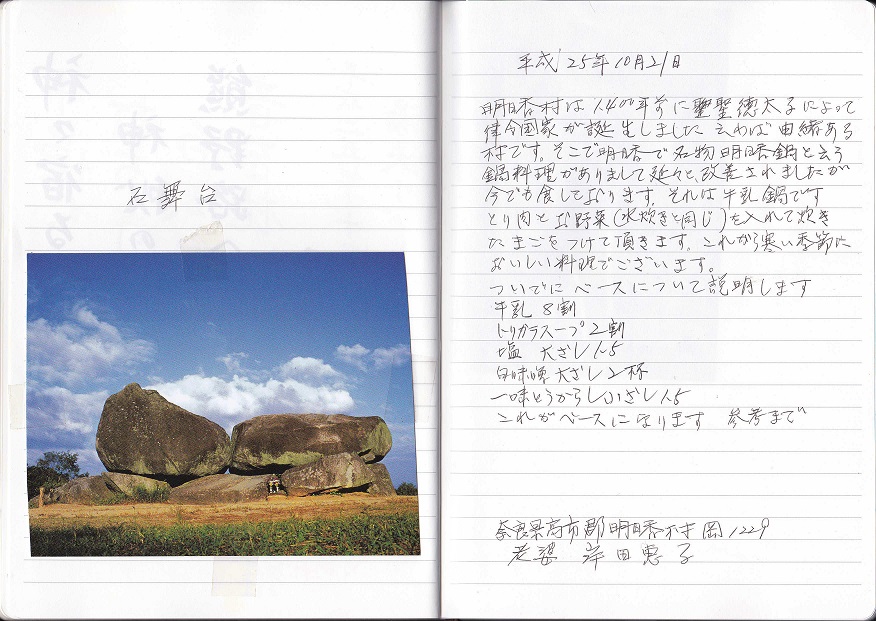 石舞台
平成25年10月21日
明日香村は1400年前に聖徳太子によって
律令国家が誕生しました 云わば由緒ある
村です。そこで明日香で名物明日香鍋と云う
鍋料理がありまして延々と、改善されましたが
今でも食しております。それは牛乳鍋です
とり肉と野菜(水炊きと同じ)を入れて炊き
たまごをつけて頂きます。これから寒い季節に
おいしい料理でございます。
ついでにベースについて説明します
牛乳 8割
トリガラスープ2割
塩 大さじ1.5
白味噌大さじ2杯
一味とうがらし小さじ1.5
これがベースになります 参考まで
奈良県高市郡明日香村岡1229
老婆 岸田恵子